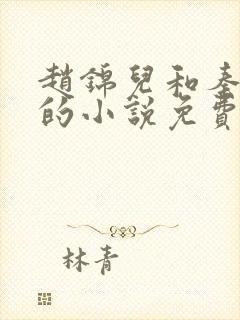 趙錦兒和秦
的小說免費
林青